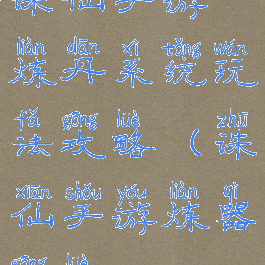 诛仙手游
liàn dān xì tǒng wán
炼丹系统玩
fǎ gōng luè zhū
法攻略（诛
xiān shǒu yóu liàn qì
仙手游炼器
gōng luè